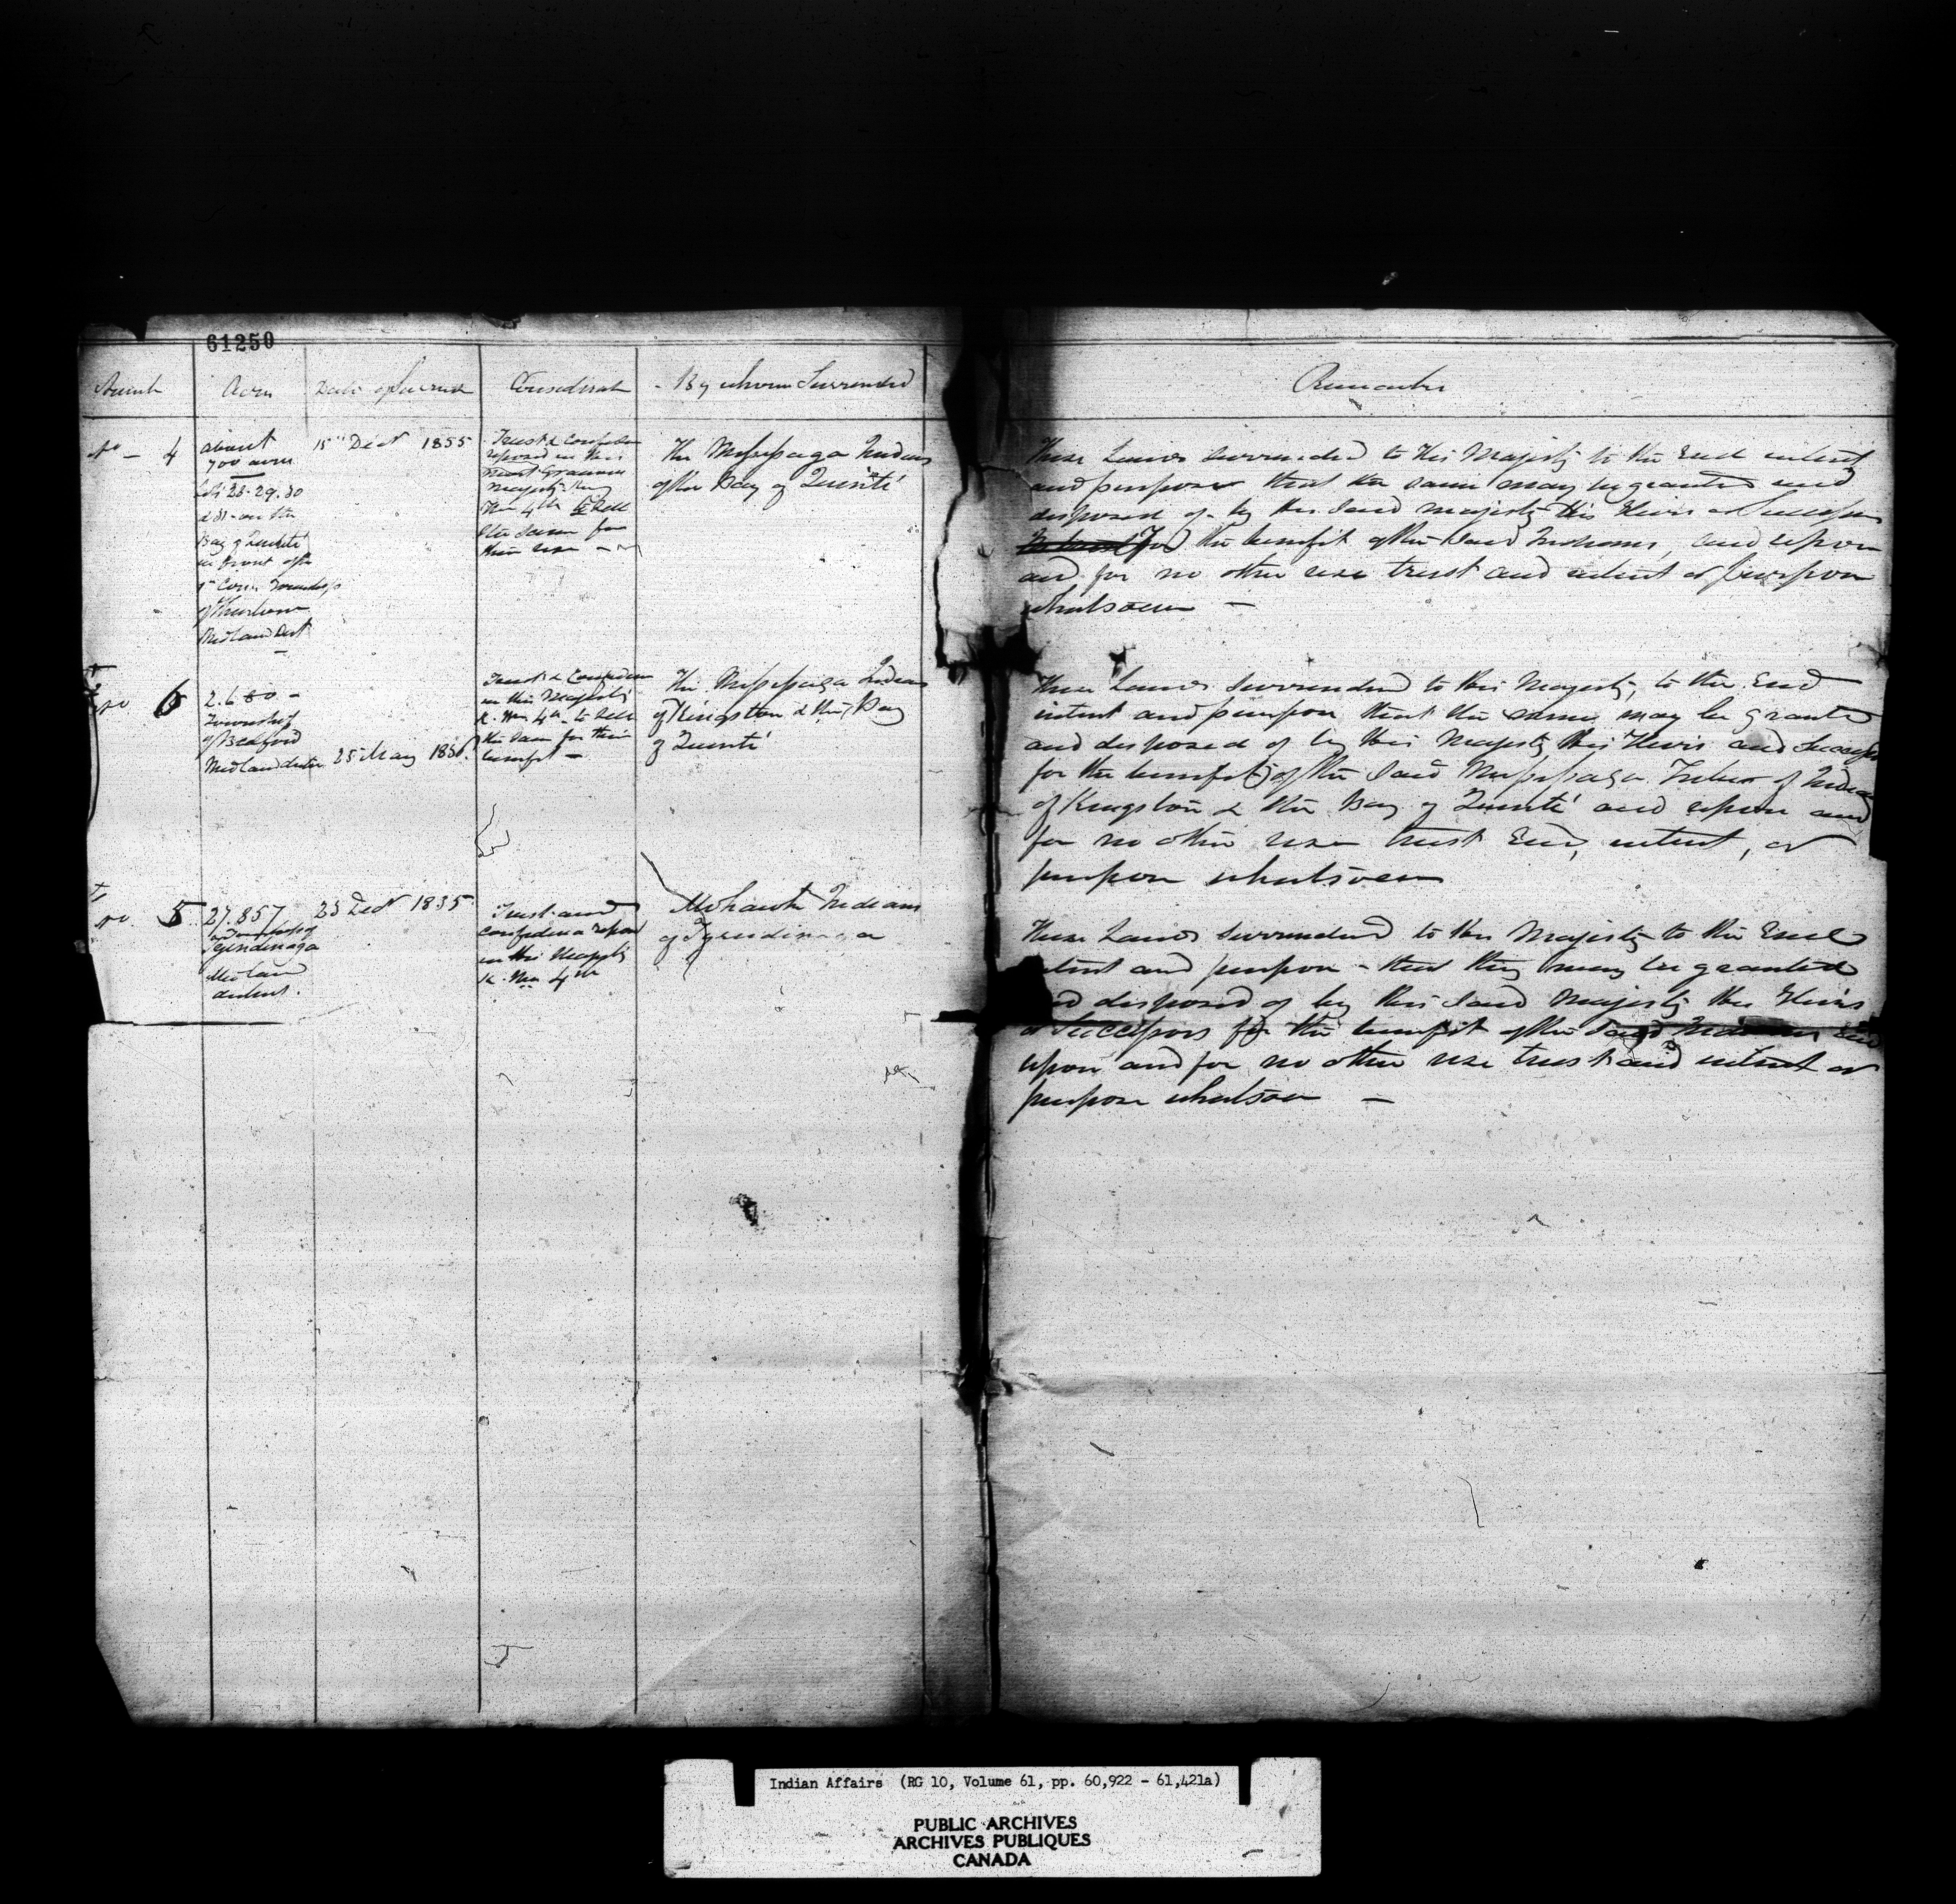 61250
Numb
Acres
Date of Surrend
Considerat
By whom Surrended
Remarks
No - 4
about
700 acres
Lots 28. 29. 30
& 31 - on the
Bay of Quinté
in front of the
1st Con. Township
of Thurlow
Midland Dist
15th Decr 1835
Trust & Confiden
reposed in His
Most Gracious
Majesty King
Wm 4th to Sell
the Same for
their use
The Missisaga Indians
of the Bay of Quinté
These Lands surrended to His Majesty to the End intent
and purpose that the same may be granted and
disposed of by his said Majesty His Heirs or Successors
for the benefit of the said Indians, and upon
and for no other use trust and intent or purpose
whatsoever -
No 6
2.680 -
Township
of Bedford
Midland district
25 May 1836
Trust & Confiden
in His Majesty
K. Wm 4th to Sell
the Same for their
benefit -
The Missisaga Indians
of Kingston & the Bay
of Quinté
These Lands Surrended to His Majesty, to the End
intent and purpose that the same may be granted
and disposed of by His Majesty His Heirs and Successors
for the benefit of the said Missisaga Tribes of Indians
of Kingston & the Bay of Quinté and upon and
for no other use trust End, intent, or
purpose whatsoever
No. 5
27.857
in Township of
Tyendinaga
Midland
district.
23 Decr 1835
Trust and
confidence repos
in His Majesty
K. Wm 4th
Mohawk Indians
of Tyendinaga
These Lands Surrended to His Majesty to the End
intent and purpose - that they may be granted
and disposed of by His said Majesty His Heirs
& Successors for the benefit of the said Indians and
upon and for no other use trust and intent or
purpose whatsoever -
Indian Affairs (RG 10, Volume 61, pp. 60,922 - 61,421a)
PUBLIC ARCHIVES
ARCHIVES PUBLIQUES
CANADA